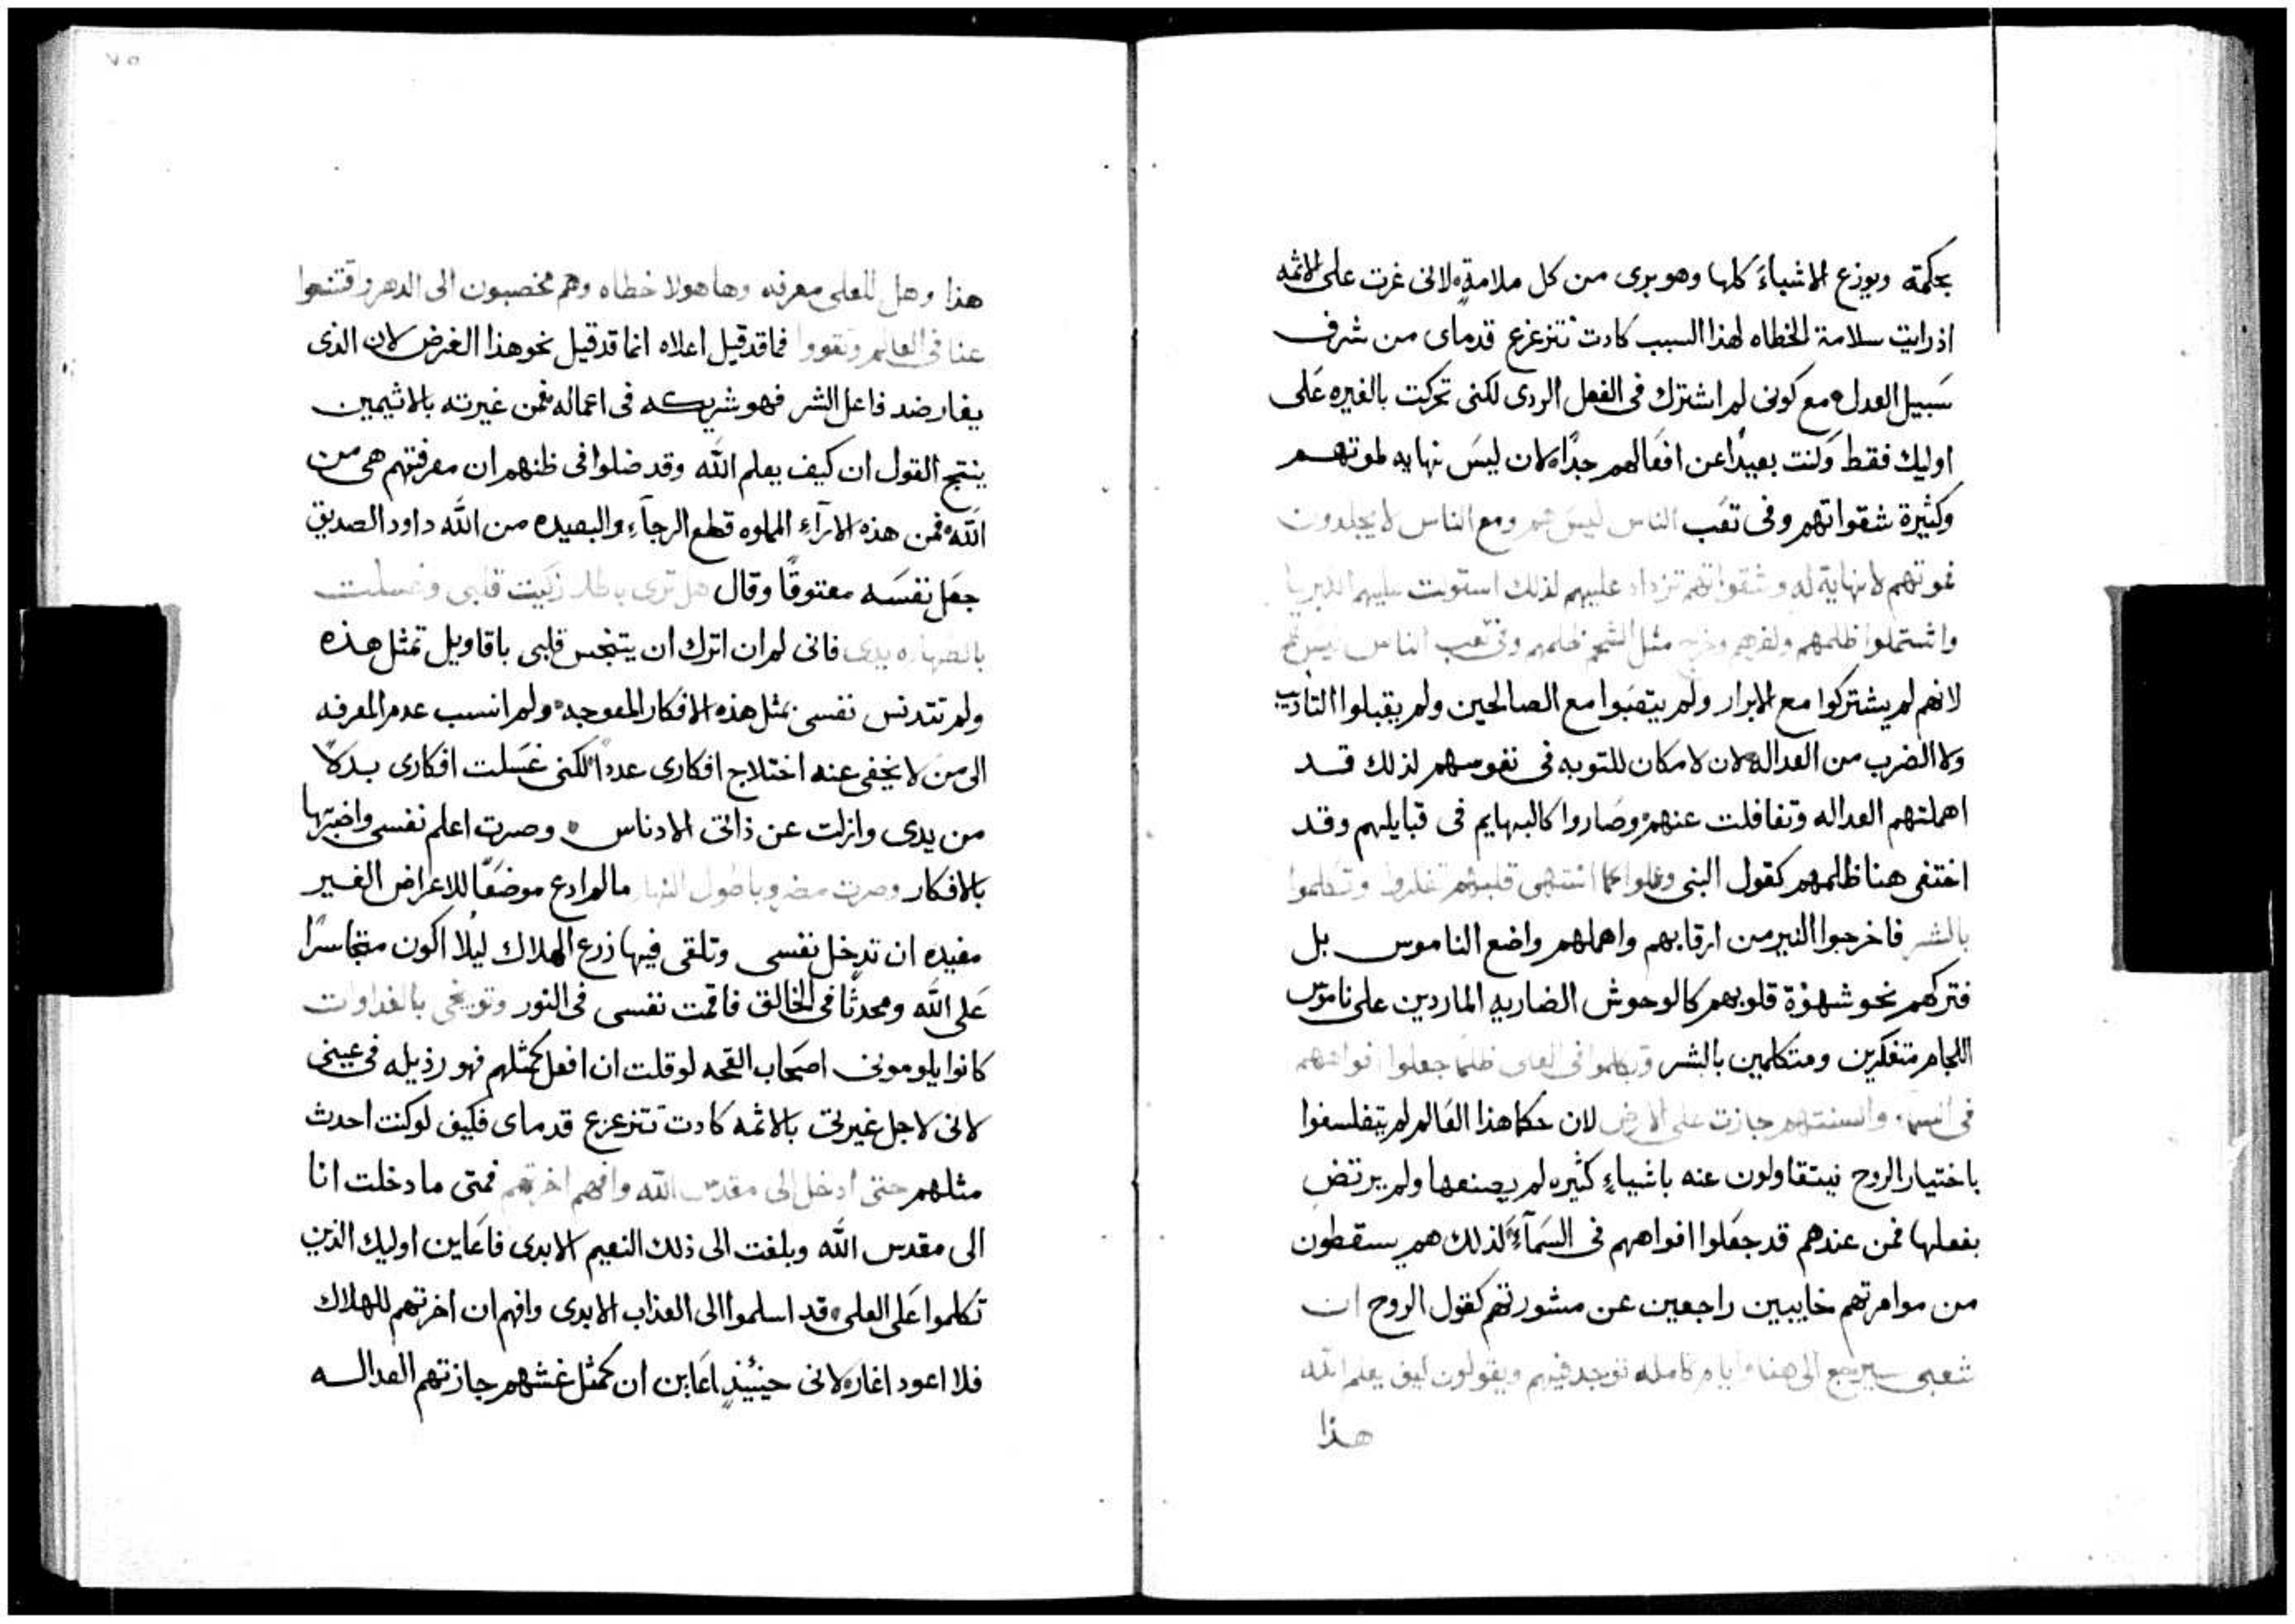 بحكمته ويوزع الاشياءَ كلها وهو بري من كل ملامةٍ لاني غرت على الاثمه
اذ رايت سلامة الخطاه لهذا السبب كادت تتزعزع قدماي من شرف
سَبيل العدل مع كوني لم اشترك في الفعل الردي لكني تحركت بالغيره عَلى
اوليك فقط وَكنت بعيدًا عن افعَالهم جدًا لان ليسَ نهايه لموتهم
وكثيرة شقواتهم وفي تعَب الناس ليسَ هم ومع الناس لا يجلدون
فموتهم لا نهاية له وشقواتهم تزداد عليهم لذلك استولت عليهم الكبريا
واشتملوا ظلمهم ونفاقهم وخرج مثل الشحم ظلمهم وفي تعب الناس ليس هم
لانهم لم يشتركوا مع الابرار ولم يتعَبوا مع الصالحين ولم يقبلوا التأديب
ولا الضرب من العداله لان لا مكان للتوبه في نفوسهم لذلك قد
اهملتهم العداله وتغافلت عنهم وصَاروا كالبهايم في قبايلهم وقد
اختفى هنا ظالمهم كقول النبي وغلوا كما اشتهى قلبهم تفكروا وتكلموا
بالشر فاخرجوا النير من ارقابهم واهملهم واضع الناموس بل
فتركهم نحو شهوة قلوبهم كالوحوش الضاريه الماردين على ناموس
اللجام متفكرين ومتكلمين بالشر وتكلموا في العلى ظلمًا جعلوا افواههم
في السماء والسنتهم جازت على الارض لان حكما هذا العَالم لم يتفلسفوا
باختيار الروح فيتقاولون عنه باشياءٍ كثيره لم يصنعها ولم يرتضِ
بفعلها فمن عندهم قد جعَلوا افواههم في السَمآءِ لذلك هم يسقطون
من موامرتهم خايبين راجعين عن مشورتهم كقول الروح ان
شعبي سيرجع الى هنا وايام كامله توجد فيهم ويقولون كيف يعلم الله
هذا
هذا وهل للعلي معرفه وها هولا خطاه وهم مخصبون الى الدهر واقتنعوا
عنا في العالم وتقووا فما قد قيل اعلاه انما قد قيل نحو هذا الغرض لان الذي
يغار ضد فاعل الشر فهو شريكه في اعماله فمن غيرته بالاثيمين
ينتج القول ان كيف يعلم اللّه وقد ضلوا في ظنهم ان معرفتهم هي من
اللّه فمن هذه الارآءِ المملوه قطع الرجآءِ والبعيده من اللّه داود الصديق
جعَل نفسَه معتوقًا وقال هل ترى باطلا زكيت قلبي وغسلت
بالطهاره يدي فاني لم ان اترك ان يتنجس قلبي باقاويل تمثل هذه
ولم تتدنس نفسي بمثل هذه الافكار المعوجه ولم انسب عدم المعرفه
الى من لا يخفى عنه اختلاج افكاري عددًا لكني غسَلت افكاري بدلاً
من يدي وازلت عن ذاتي الادناس وصرت اعلم نفسي واختبرها
بالافكار وصرت مضروبا طول النهار ما لم ادع موضعًا للاعراض الغير
مفيده ان تدخل نفسي وتلقي فيها زرع الهلاك ليلا اكون متجاسرًا
عَلى اللّه ومحدثًا في الخالق فاقمت نفسي في النور وتوبيخي بالغداوات
كانوا يلوموني اصحَاب القحه لو قلت ان افعل كمثلهم فهو رذيله في عيني
لاني لاجل غيرتي بالاثمه كادت تتزعزع قدماي فكيف لو كنت احدث
مثلهم حتى ادخل الى مقدس اللّه وافهم اخرتهم فمتى ما دخلت انا
الى مقدس اللّه وبلغت الى ذلك النعيم الابدي فاعَاين اوليك الذين
تكلموا عَلى العلي قد اسلموا الى العذاب الابدي وافهم ان اخرتهم للهلاك
فلا اعود اغار لاني حينيذٍ اعَاين ان كمثل غشهم جازتهم العداله